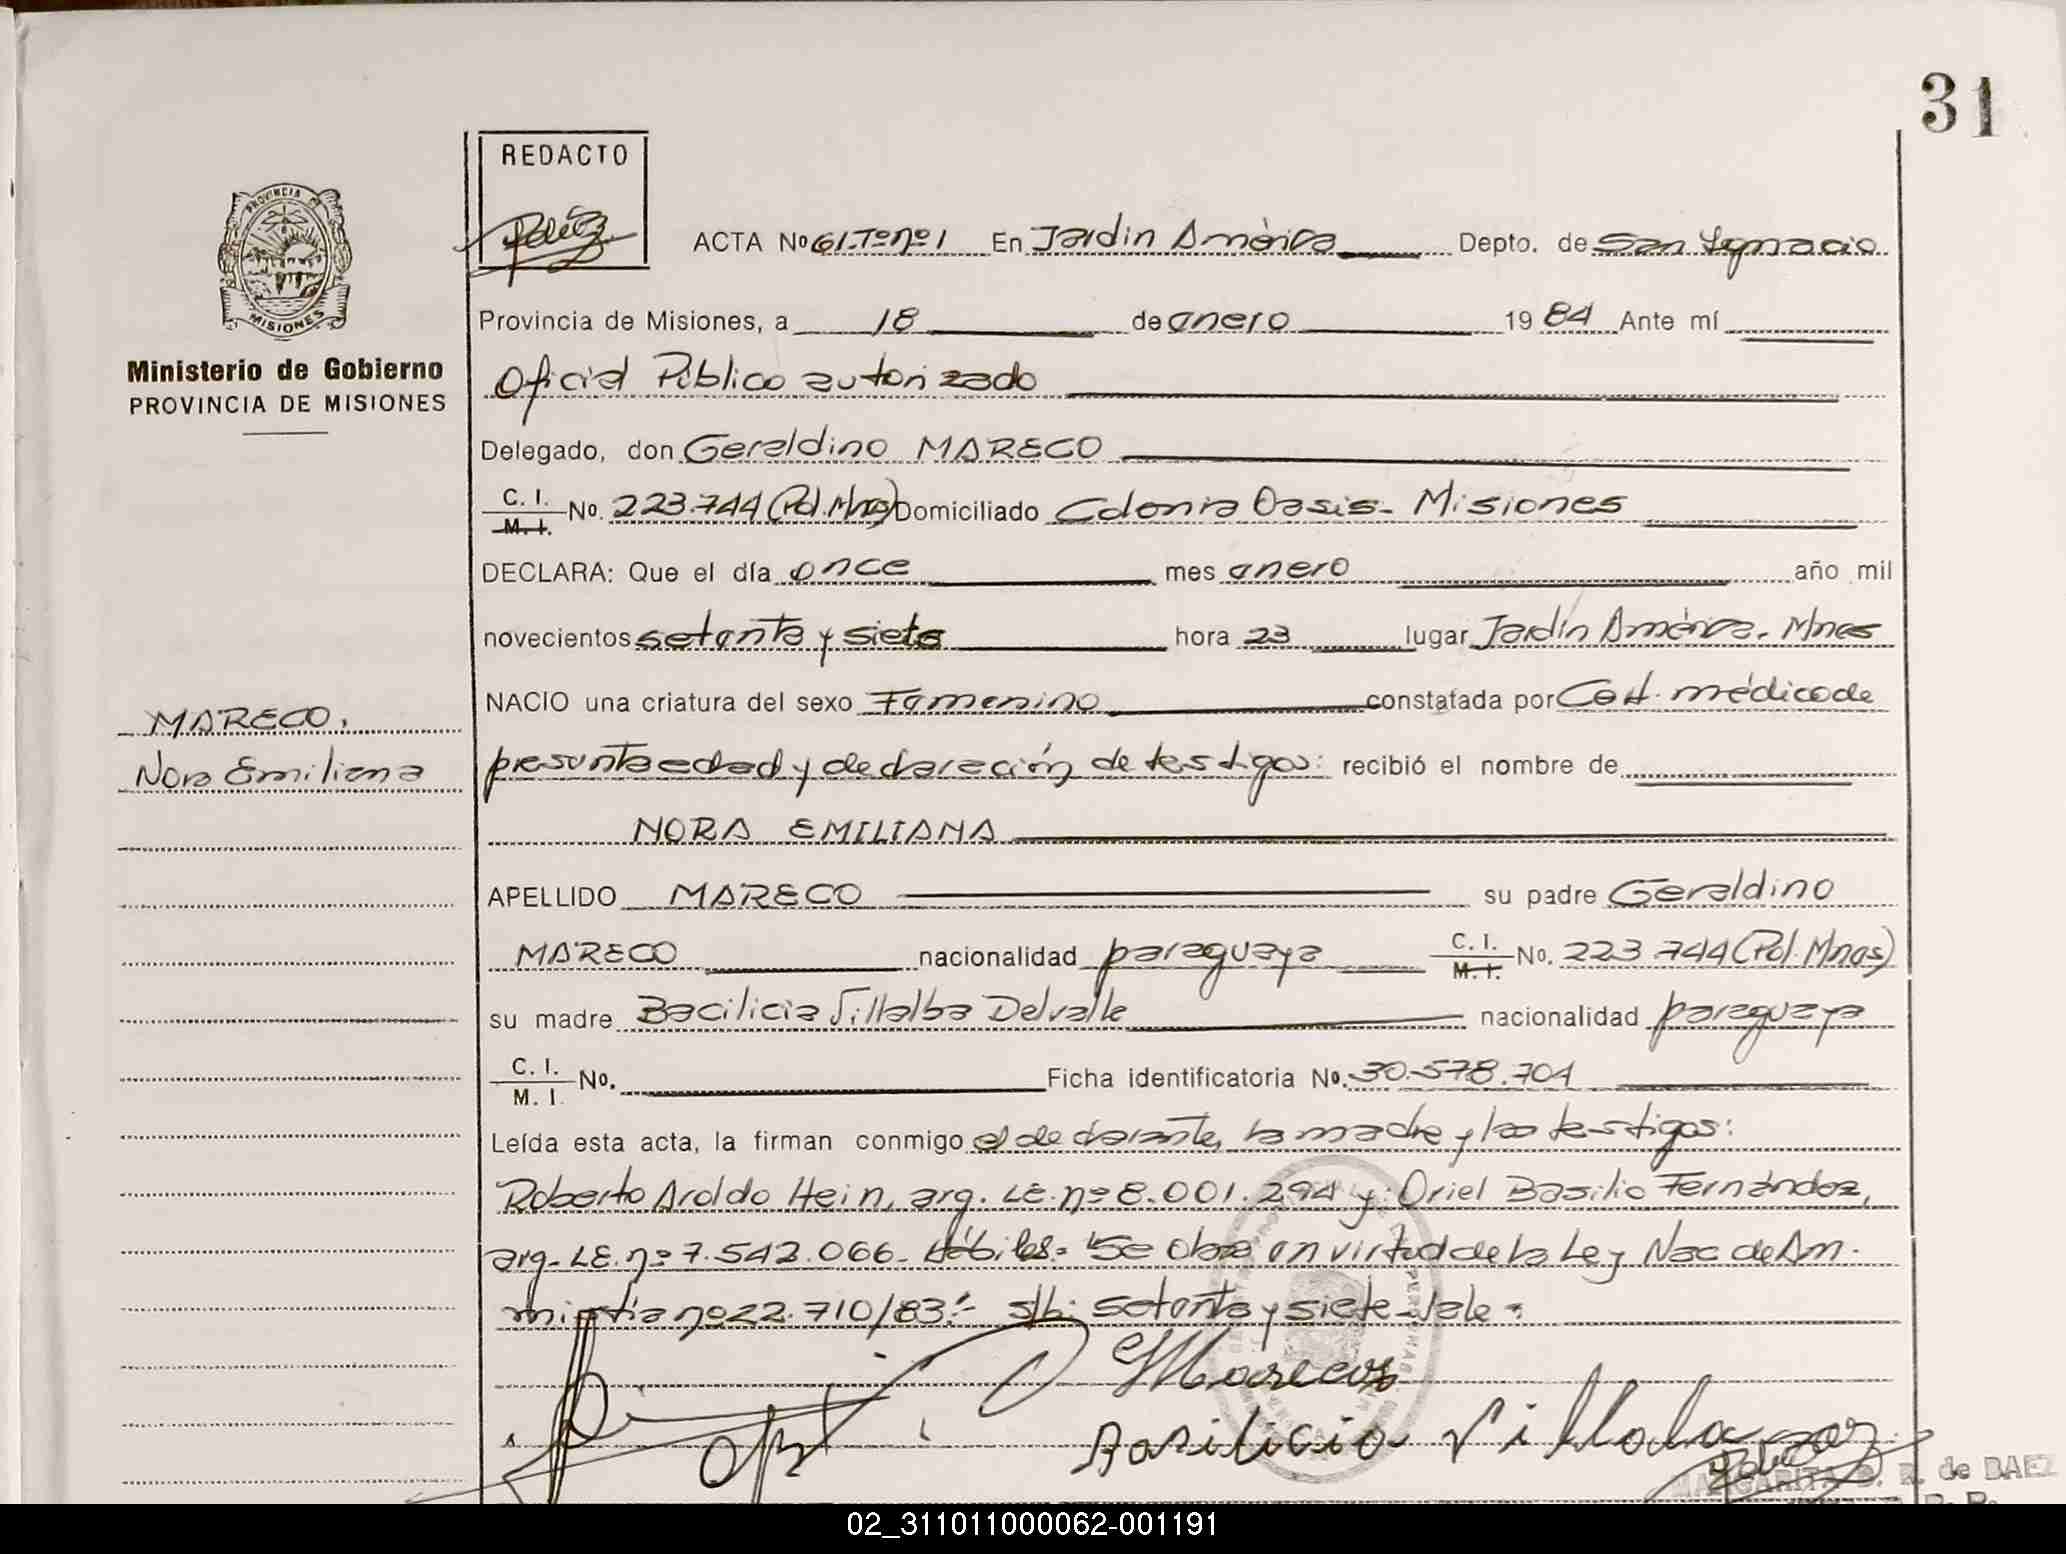 31
REDACTO
PROVINCIA DE
MISIONES
Ministerio de Gobierno
PROVINCIA DE MISIONES
ACTA Nº 61.Tº nº 1 En Jardin América Depto. de San Ignacio
Provincia de Misiones, a 18 de enero 1984 Ante mí
Oficial Público autorizado
Delegado, don Geraldino MARECO
C. I. M. I. Nº. 223.744 (Pol. Mnes) Domiciliado Colonia Oasis - Misiones
DECLARA: Que el día once mes enero año mil
novecientos setenta y siete hora 23 lugar Jardín América. Mnes
NACIO una criatura del sexo Femenino constatada por Cert. médico de
presunta edad y declaración de testigos: recibió el nombre de
NORA EMILIANA
APELLIDO MARECO su padre Geraldino
MARECO nacionalidad paraguaya C. I. M. I. Nº. 223.744 (Pol. Mnes)
su madre Bacilicia Villalba Delvalle nacionalidad paraguaya
C. I. M. I. Nº. Ficha identificatoria Nº. 30.578.704
Leída esta acta, la firman conmigo el declarante, la madre y los testigos:
Roberto Aroldo Hein, arg. LE. nº 8.001.294 y: Oriel Basilio Fernández,
arg. LE. nº 7.542.066 - hábiles = "Se obra en virtud de la Ley Nac de Am-
nistía nº 22.710/83". - s/b: setenta y siete - Vale =
MARECO,
Nora Emiliana
Basilicia Villalba
MARGARITA de BAEZ
02_311011000062-001191